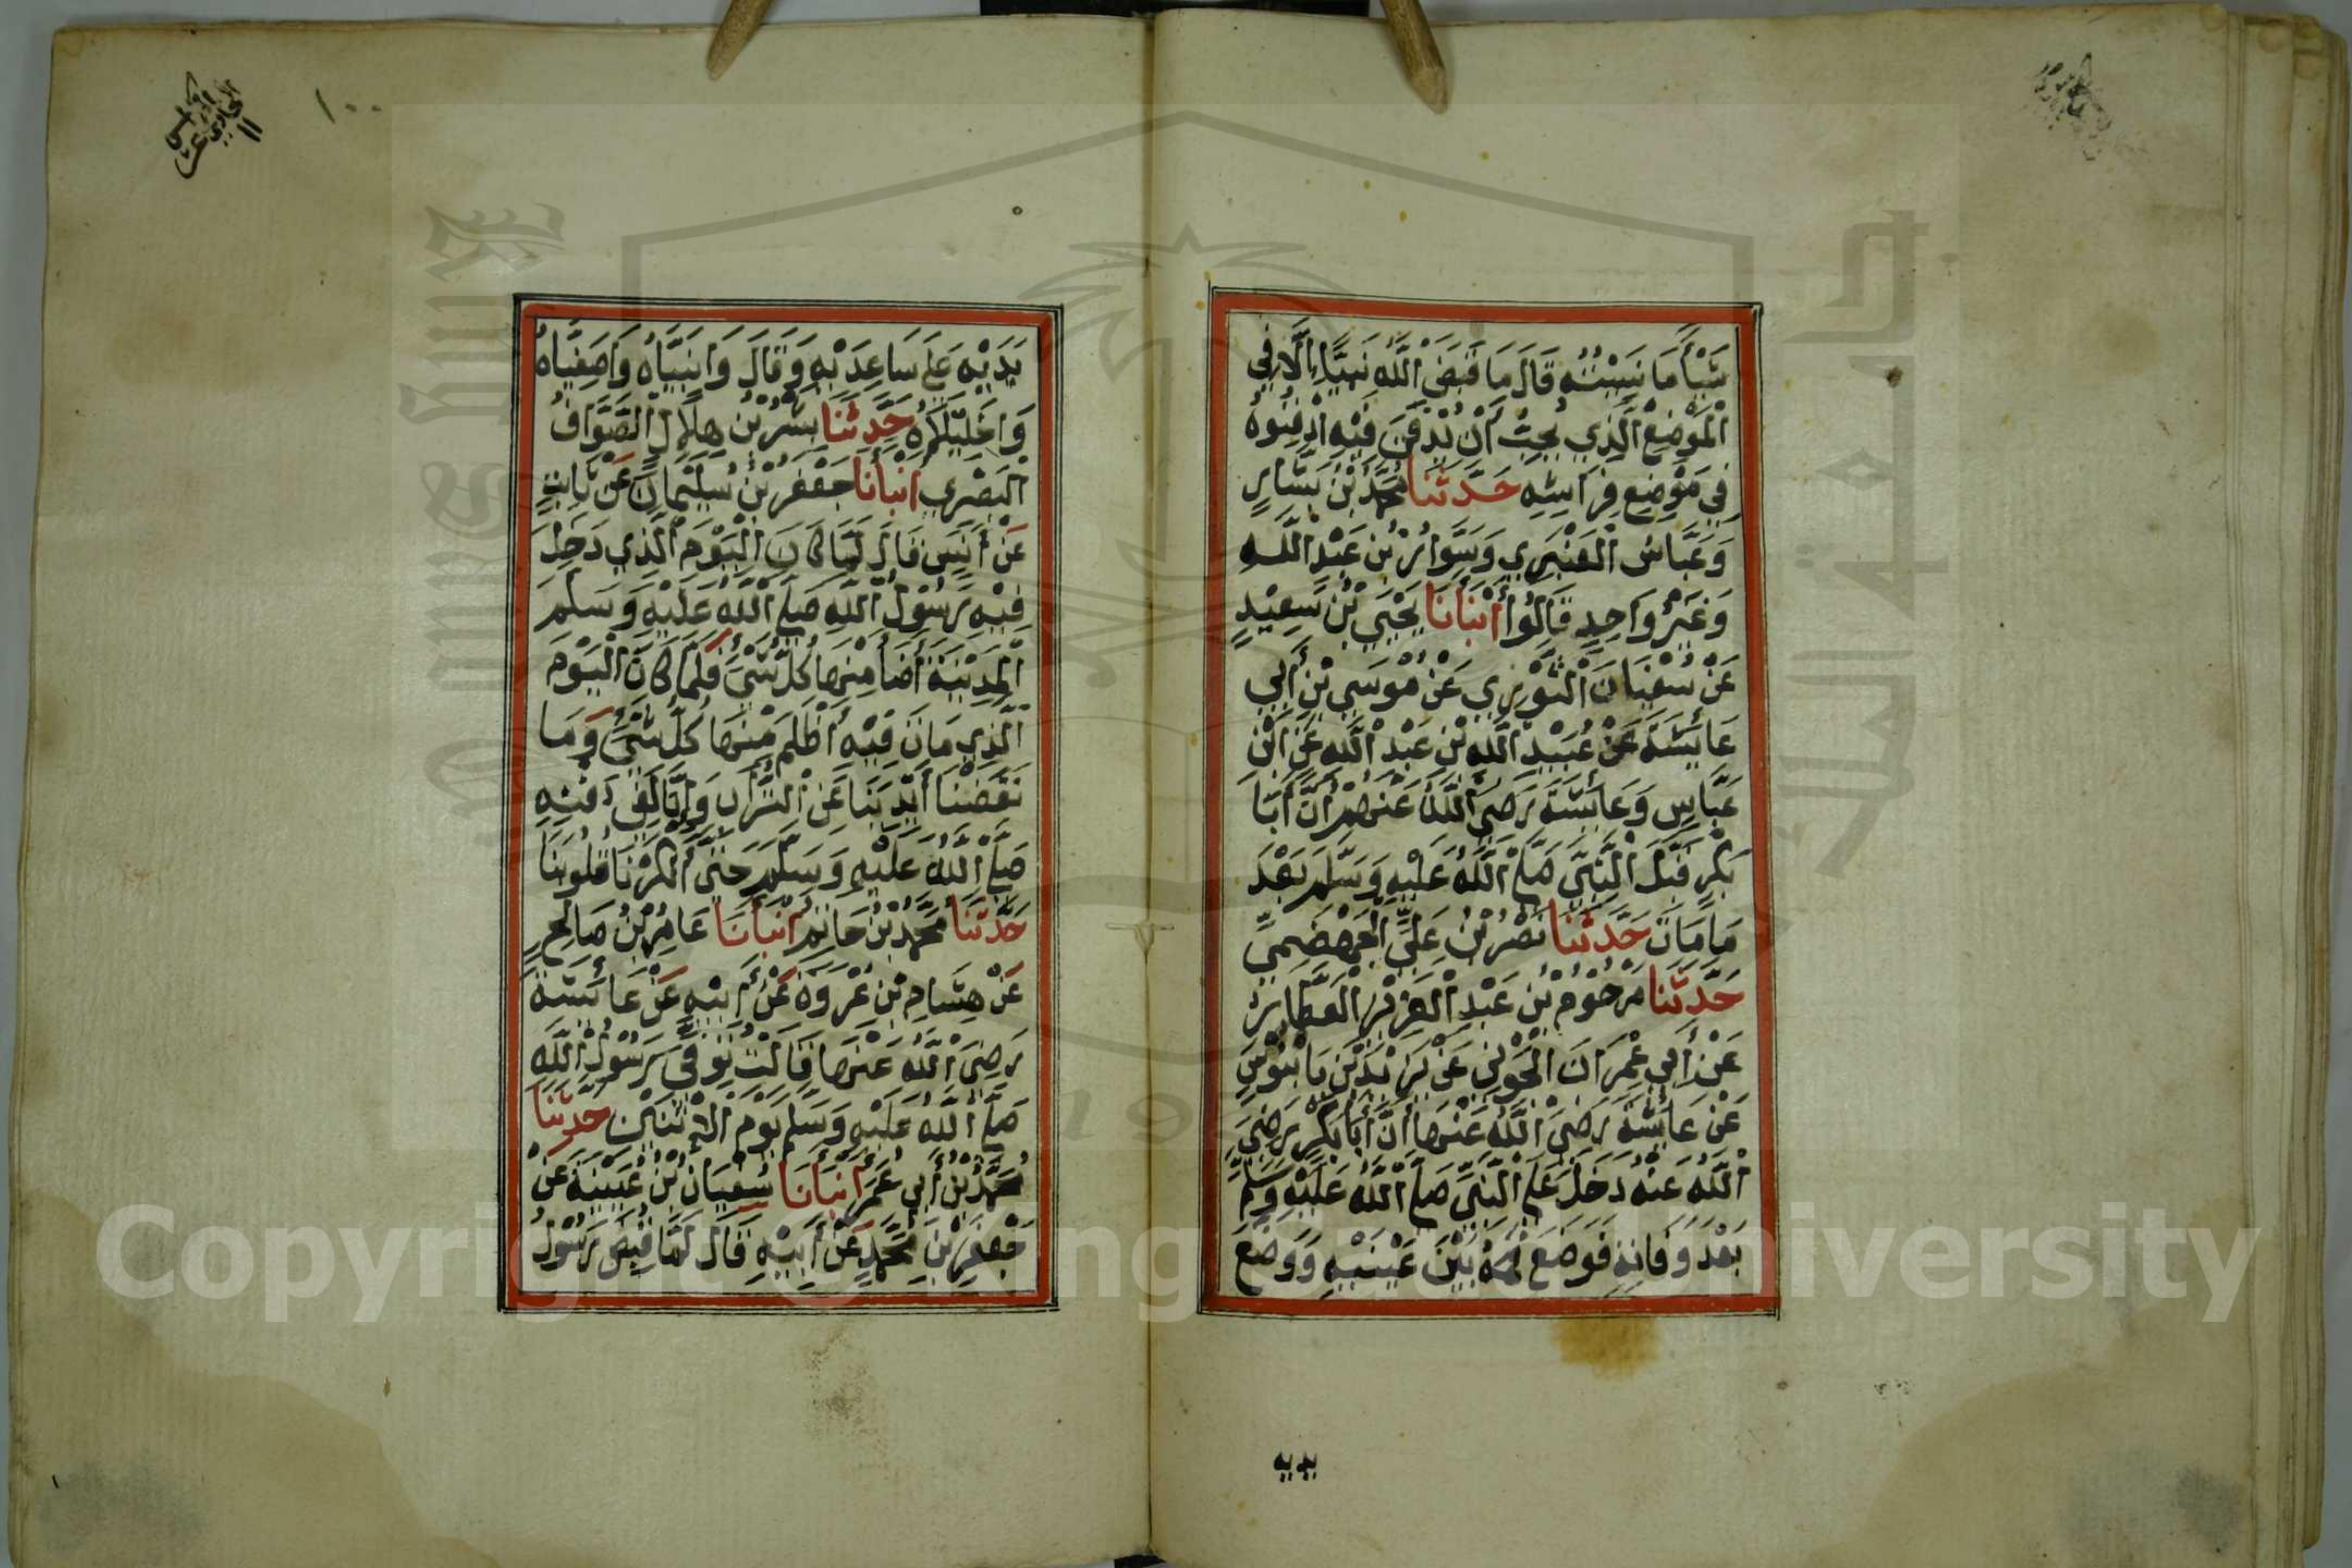 شَيْأً مَا نَسِيْتُهُ قَالَ مَا قَبَضَ اللَّهُ نَبِيًّا اِلَّا فِي
الْمَوْضِعِ الَّذِي يُحِبُّ أَنْ يُدْفَنَ فِيْهِ اِدْفِنُوهُ
فِي مَوْضِعِ فِرَاشِهِ حَدَّثَنَا مُحَمَّدُ بْنُ بَشَّارٍ
وَعَبَّاسُ الْعَنْبَرِي وَسَوَّارُ بْنُ عَبْدِ اللَّهِ
وَغَيْرُ وَاحِدٍ قَالُوا أَنْبَأَنَا يَحْيَى بْنُ سَعِيْدٍ
عَنْ سُفْيَانَ الثَّوْرِي عَنْ مُوسَى بْنِ أَبِي
عَائِشَةَ عَنْ عُبَيْدِ اللَّهِ بْنِ عَبْدِ اللَّهِ عَنِ ابْنِ
عَبَّاسٍ وَعَائِشَةَ رَضِيَ اللَّهُ عَنْهُمْ أَنَّ أَبَا
بَكْرٍ قَبَّلَ النَّبِيَّ صَلَّى اللَّهُ عَلَيْهِ وَسَلَّمَ بَعْدَ
مَا مَاتَ حَدَّثَنَا نَصْرُ بْنُ عَلِيٍّ الْجَهْضَمِيّ
حَدَّثَنَا مَرْحُوْمُ بْنُ عَبْدِ الْعَزِيْزِ الْعَطَّارُ
عَنْ أَبِي عِمْرَانَ الْجَوْنِي عَنْ يَزِيْدَ بْنِ بَابَنُوْسَ
عَنْ عَائِشَةَ رَضِيَ اللَّهُ عَنْهَا أَنَّ أَبَا بَكْرٍ رَضِيَ
اللَّهُ عَنْهُ دَخَلَ عَلَى النَّبِيِّ صَلَّى اللَّهُ عَلَيْهِ وَسَلَّمَ
بَعْدَ وَفَاتِهِ فَوَضَعَ فَمَهُ بَيْنَ عَيْنَيْهِ وَوَضَعَ
يديه
١٠٠
يَدَيْهِ عَلَى سَاعِدَيْهِ وَقَالَ وَانَبِيَّاهُ وَاصَفِيَّاهُ
وَاخَلِيْلَاهُ حَدَّثَنَا بِشْرُ بْنُ هِلَالٍ الصَّوَّافُ
الْبَصْرِي اَنْبَأَنَا جَعْفَرُ بْنُ سُلَيْمَانَ عَنْ ثَابِتٍ
عَنْ أَنَسٍ قَالَ لَمَّا كَانَ الْيَوْمَ الَّذِي دَخَلَ
فِيْهِ رَسُوْلُ اللَّهِ صَلَّى اللَّهُ عَلَيْهِ وَسَلَّمَ
الْمَدِيْنَةَ أَضَأَ مِنْهَا كُلُّ شَيْءٍ فَلَمَّا كَانَ الْيَوْمَ
الَّذِي مَاتَ فِيْهِ أَظْلَمَ مِنْهَا كُلُّ شَيْءٍ وَمَا
نَفَضْنَا أَيْدِيَنَا عَنِ التُّرَابِ وَإِنَّا لَفِي دَفْنِهِ
صَلَّى اللَّهُ عَلَيْهِ وَسَلَّمَ حَتَّى أَنْكَرْنَا قُلُوبَنَا
حَدَّثَنَا مُحَمَّدُ بْنُ حَاتِمٍ أَنْبَأَنَا عَامِرُ بْنُ صَالِحٍ
عَنْ هِشَامِ بْنِ عُرْوَةَ عَنْ أَبِيْهِ عَنْ عَائِشَةَ
رَضِيَ اللَّهُ عَنْهَا قَالَتْ تُوُفِّيَ رَسُوْلُ اللَّهِ
صَلَّى اللَّهُ عَلَيْهِ وَسَلَّمَ يَوْمَ الْاِثْنَيْنِ حَدَّثَنَا
مُحَمَّدُ بْنُ أَبِي عُمَرَ أَنْبَأَنَا سُفْيَانُ بْنُ عُيَيْنَةَ عَنْ
جَعْفَرِ بْنِ مُحَمَّدٍ عَنْ أَبِيْهِ قَالَ لَمَّا قُبِضَ رَسُوْلُ
Copyright © King Saud University